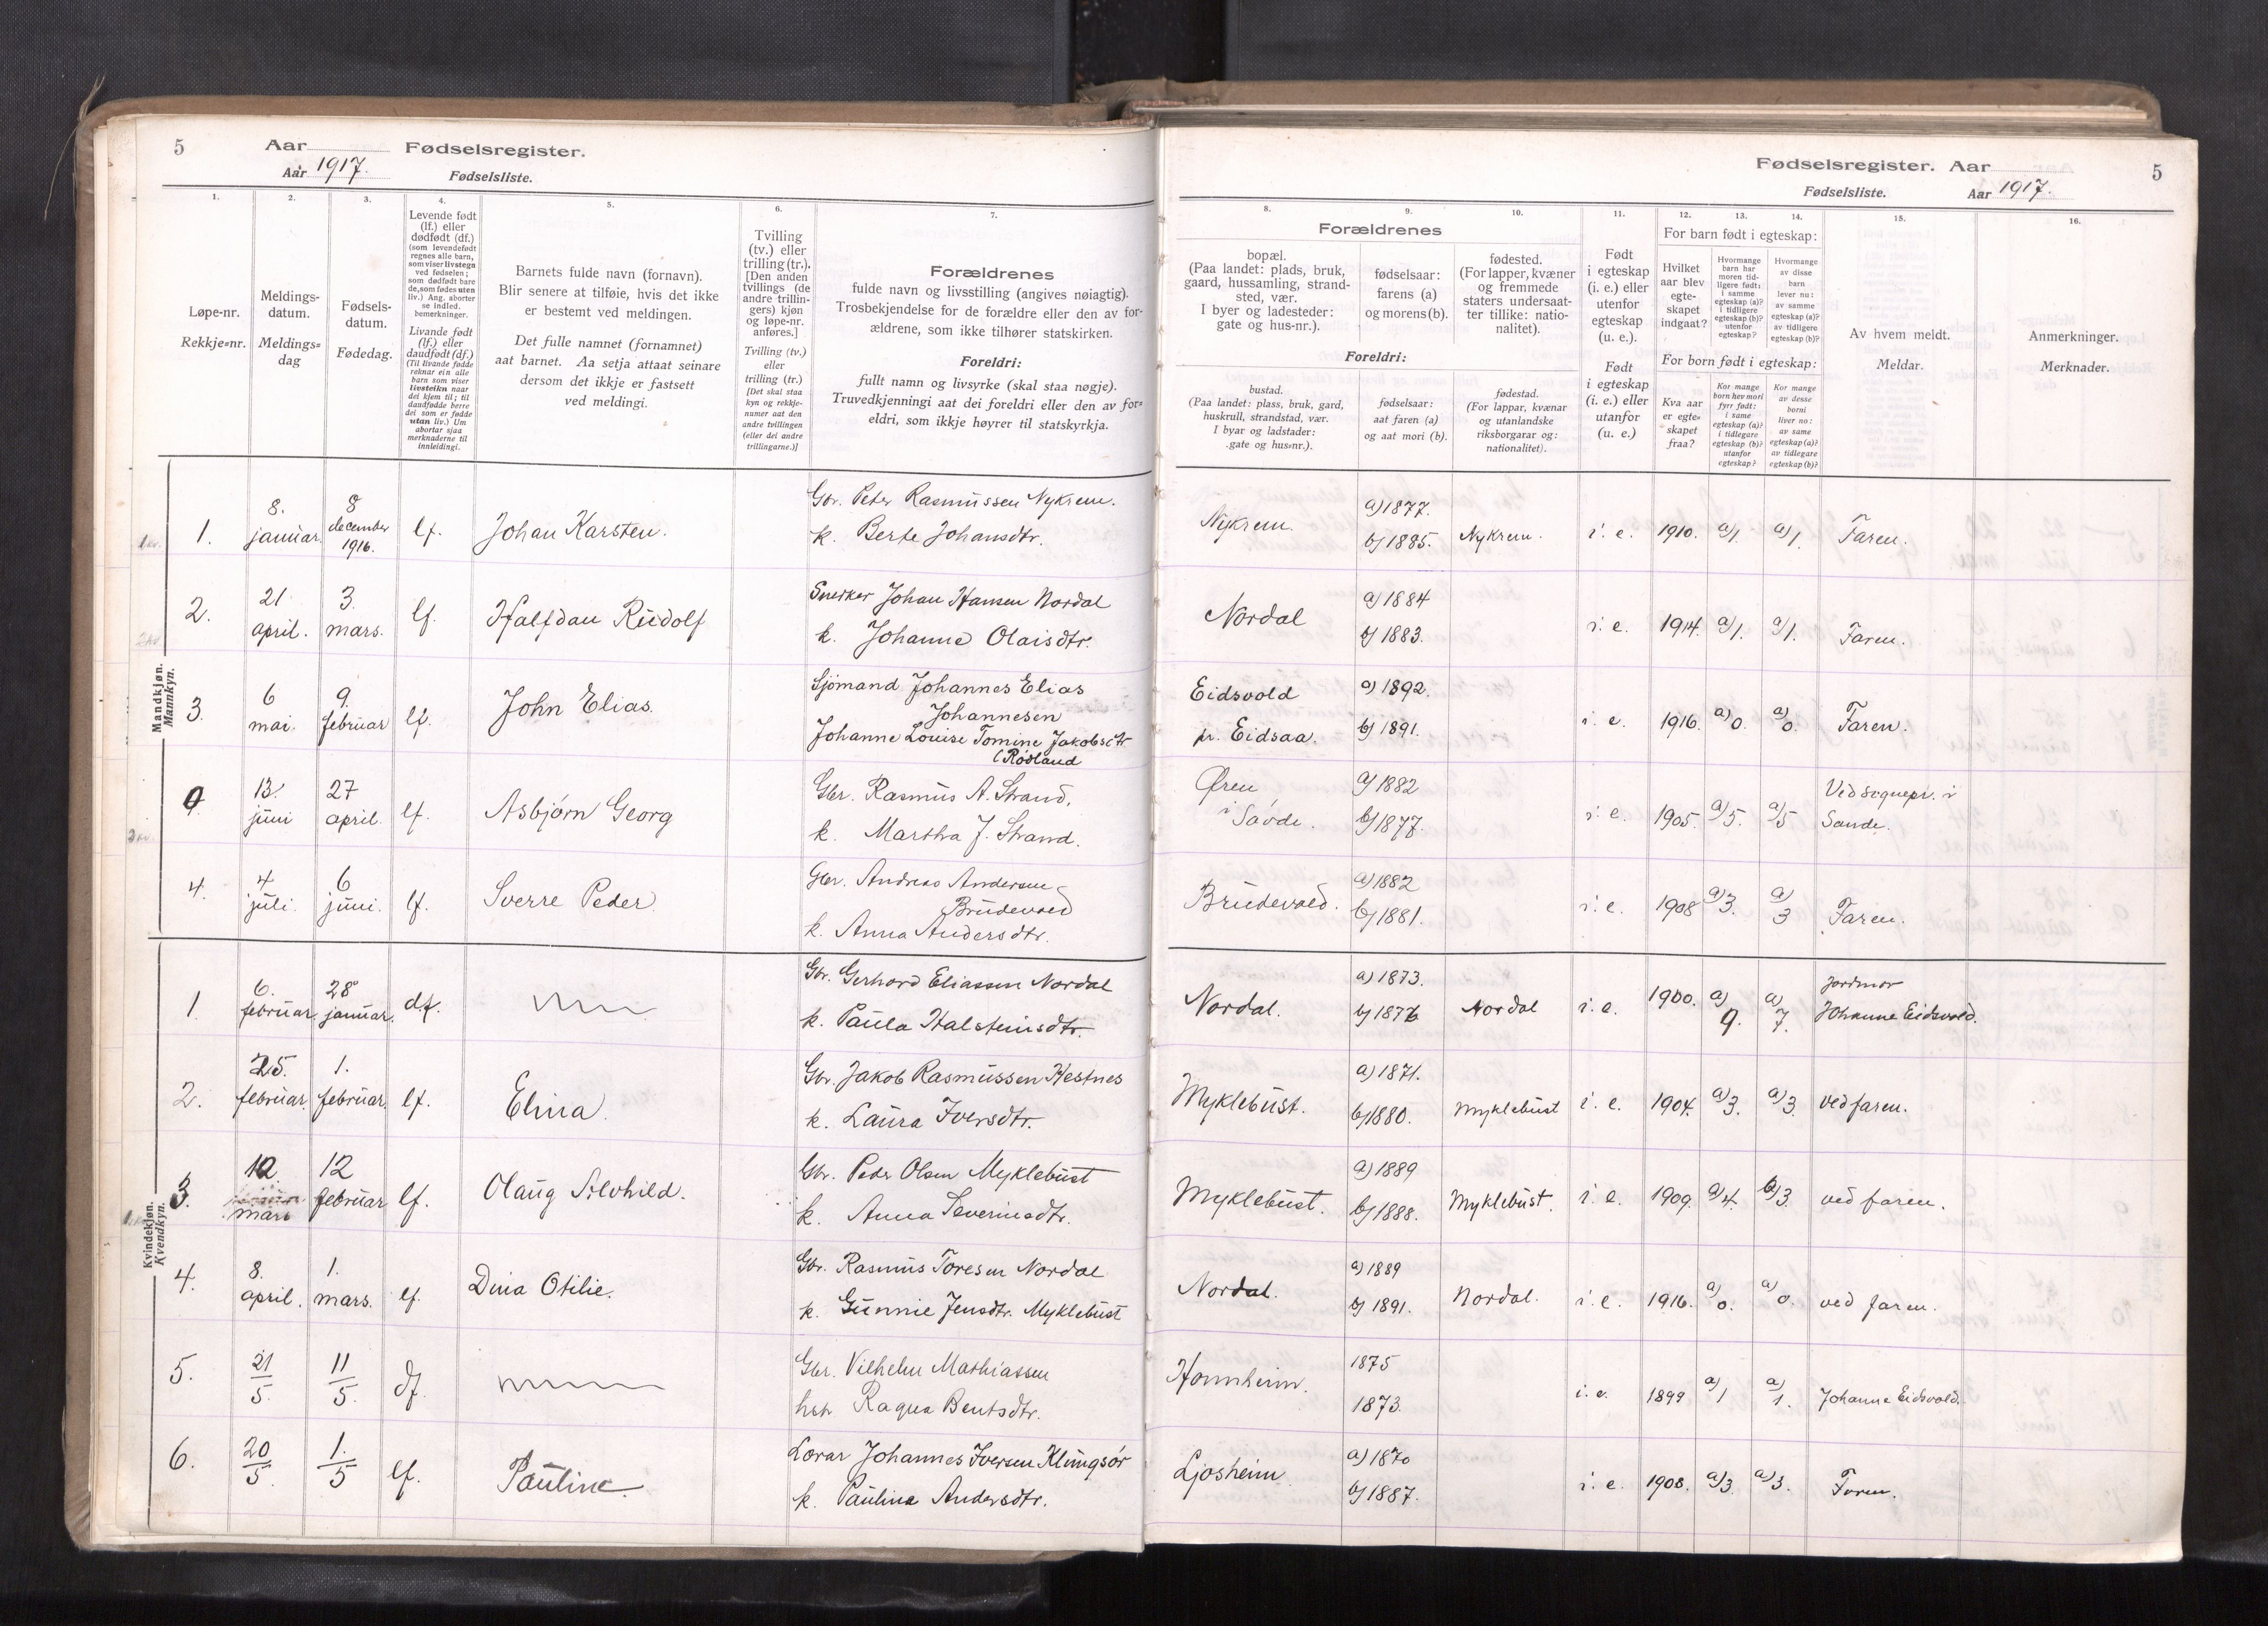 5
Aar
Aar 1917.
Fødselsregister.
Fødselsliste.
1.
Løpe-nr.
Rekkje=nr.
2.
Meldings-
datum.
Meldings=
dag
3.
Fødsels-
datum.
Fødedag.
4.
Levende født
(lf.) eller
dødfødt (df.)
(som levendefødt
regnes alle barn,
som viser livstegn
ved fødselen;
som dødfødt bare
de, som fødes uten
liv.) Ang. aborter
se indled.
bemerkninger.
Livande født
(lf.) eller
daudfødt (df.)
(Til livande fødde
reknar ein alle
barn som viser
livsteikn naar
dei kjem til; til
daudfødde berre
dei som er fødde
utan liv.) Um
abortar sjaa
merknaderne til
innleidingi.
5.
Barnets fulde navn (fornavn).
Blir senere at tilføie, hvis det ikke
er bestemt ved meldingen.
Det fulle namnet (fornamnet)
aat barnet. Aa setja attaat seinare
dersom det ikkje er fastsett
ved meldingi.
6.
Tvilling
(tv.) eller
trilling (tr.).
[Den anden
tvillings (de
andre trillin-
gers) kjøn
og løpe-nr.
anføres.]
Tvilling (tv.)
eller
trilling (tr.)
[Det skal staa
kyn og rekkje-
numer aat den
andre tvillingen
(eller dei andre
trillingarne.)]
7.
Forældrenes
fulde navn og livsstilling (angives nøiagtig).
Trosbekjendelse for de forældre eller den av for-
ældrene, som ikke tilhører statskirken.
Foreldri:
fullt namn og livsyrke (skal staa nøgje).
Truvedkjenningi aat dei foreldri eller den av for=
eldri, som ikkje høyrer til statskyrkja.
Mandkjøn.
Mannkyn.
1.
8.
januar.
8
december
1916.
lf.
Johan Karsten.
Gbr. Peter Rasmussen Nykrem.
k. Berte Johansdtr.
2.
21
april.
3.
mars.
lf.
Halfdan Rudolf
Snerker Johan Hansen Nordal
k. Johanne Olaisdtr.
3.
6
mai.
9.
februar
lf.
John Elias.
Sjömand Johannes Elias
Johannesen
Johanne Louise Tomine Jakobsdtr
(Rödland
0
13.
juni
27
april.
lf.
Asbjørn Georg
Gbr. Rasmus A. Strand,
k. Martha J. Strand.
4.
4
juli.
6
juni.
lf.
Sverre Peder
Gbr. Andreas Andersen
Brudevold
k. Anna Andersdtr.
Kvindekjøn.
Kvendkyn.
1.
6.
februar.
28
januar.
df.
Gbr. Gerhard Eliassen Nordal
k. Paula Halsteinsdtr.
2.
25.
februar.
1.
februar.
lf.
Elina.
Gbr. Jakob Rasmussen Hestnes
k. Laura Iversdtr.
3.
12.
mars
12
februar
lf.
Olaug Alvhild.
Gbr. Peder Olsen Myklebust
k. Anna Severinsdtr.
4.
8.
april.
1.
mars.
lf.
Dina Otilie.
Gbr. Rasmus Toresen Nordal
k. Gunnie Jensdtr. Myklebust
5.
21
5.
11
5.
df.
Gbr. Vilhelm Mathiassen
hst. Ragna Bentsdtr.
6.
20
5.
1.
5
lf.
Pauline.
Lærar Johannes Iversen Klungsör
k. Paulina Andersdtr.
Fødselsregister. Aar
Fødselsliste. Aar 1917.
5
8.
Forældrenes
bopæl.
(Paa landet: plads, bruk,
gaard, hussamling, strand-
sted, vær.
I byer og ladesteder:
gate og hus-nr.).
Foreldri:
bustad.
(Paa landet: plass, bruk, gard,
huskrull, strandstad, vær.
I byar og ladstader:
gate og hus=nr.).
9.
fødselsaar:
farens (a)
og morens (b).
fødselsaar:
aat faren (a)
og aat mori (b).
10.
fødested.
(For lapper, kvæner
og fremmede
staters undersaat-
ter tillike: natio-
nalitet).
fødestad.
(For lappar, kvænar
og utanlandske
riksborgarar og:
nationalitet).
11.
Født
i egteskap
(i. e.) eller
utenfor
egteskap
(u. e.).
Født
i egteskap
(i. e.) eller
utanfor
(u. e.)
12.
13.
14.
For barn født i egteskap:
Hvilket
aar blev
egte-
skapet
indgaat?
Hvormange
barn har
moren tid-
ligere født:
i samme
egteskap (a)?
i tidligere
egteskap (b)?
utenfor
egteskap?
Hvormange
av disse
barn
lever nu:
av samme
egteskap (a)?
av tidligere
egteskap (b)?
For born født i egteskap:
Kva aar
er egte=
skapet
fraa?
Kor mange
born hev mori
fyrr født:
i same
egteskap (a)?
i tidlegare
egteskap (b)?
utanfor
egteskap?
Kor mange
av desse
borni
liver no:
av same
egteskap (a)?
av tidlegare
egteskap (b)?
15.
Av hvem meldt.
Meldar.
16.
Anmerkninger.
Merknader.
Nykrem.
a) 1877.
b) 1885.
Nykrem.
i. e.
1910.
a/1.
a/1.
Faren.
Nordal
a) 1884
b) 1883.
i. e.
1914.
a/1.
a/1.
Faren.
Eidsvold
pr. Eidsaa.
a) 1892.
b) 1891.
i. e.
1916.
a) 0.
a) 0.
Faren.
Øren
i Søvde.
a) 1882
b) 1877.
i. e.
1905.
a) 5.
a) 5
Ved sognepr. i
Sande.
Brudevold.
a) 1882
b) 1881.
i. e.
1908
a) 3.
a) 3
Faren.
Nordal.
a) 1873.
b) 1876
Nordal
i. e.
1900.
a) 9.
a) 7.
Jordmor
Johanne Eidsvold.
Myklebust.
a) 1871.
b) 1880.
Myklebust
i. e.
1904.
a) 3.
a) 3.
ved faren.
Myklebust.
a) 1889
b) 1888.
Myklebust.
i. e.
1909.
a) 4.
3.
ved faren.
Nordal.
a) 1889
b) 1891.
Nordal.
i. e.
1916.
a) 0.
a) 0.
ved faren.
Honnheim.
1875
1873.
i. e.
1899
a) 1
a) 1.
Johanne Eidsvold.
Ljosheim
a) 1870
b) 1887.
i. e.
1908.
a) 3.
a) 3.
Faren.